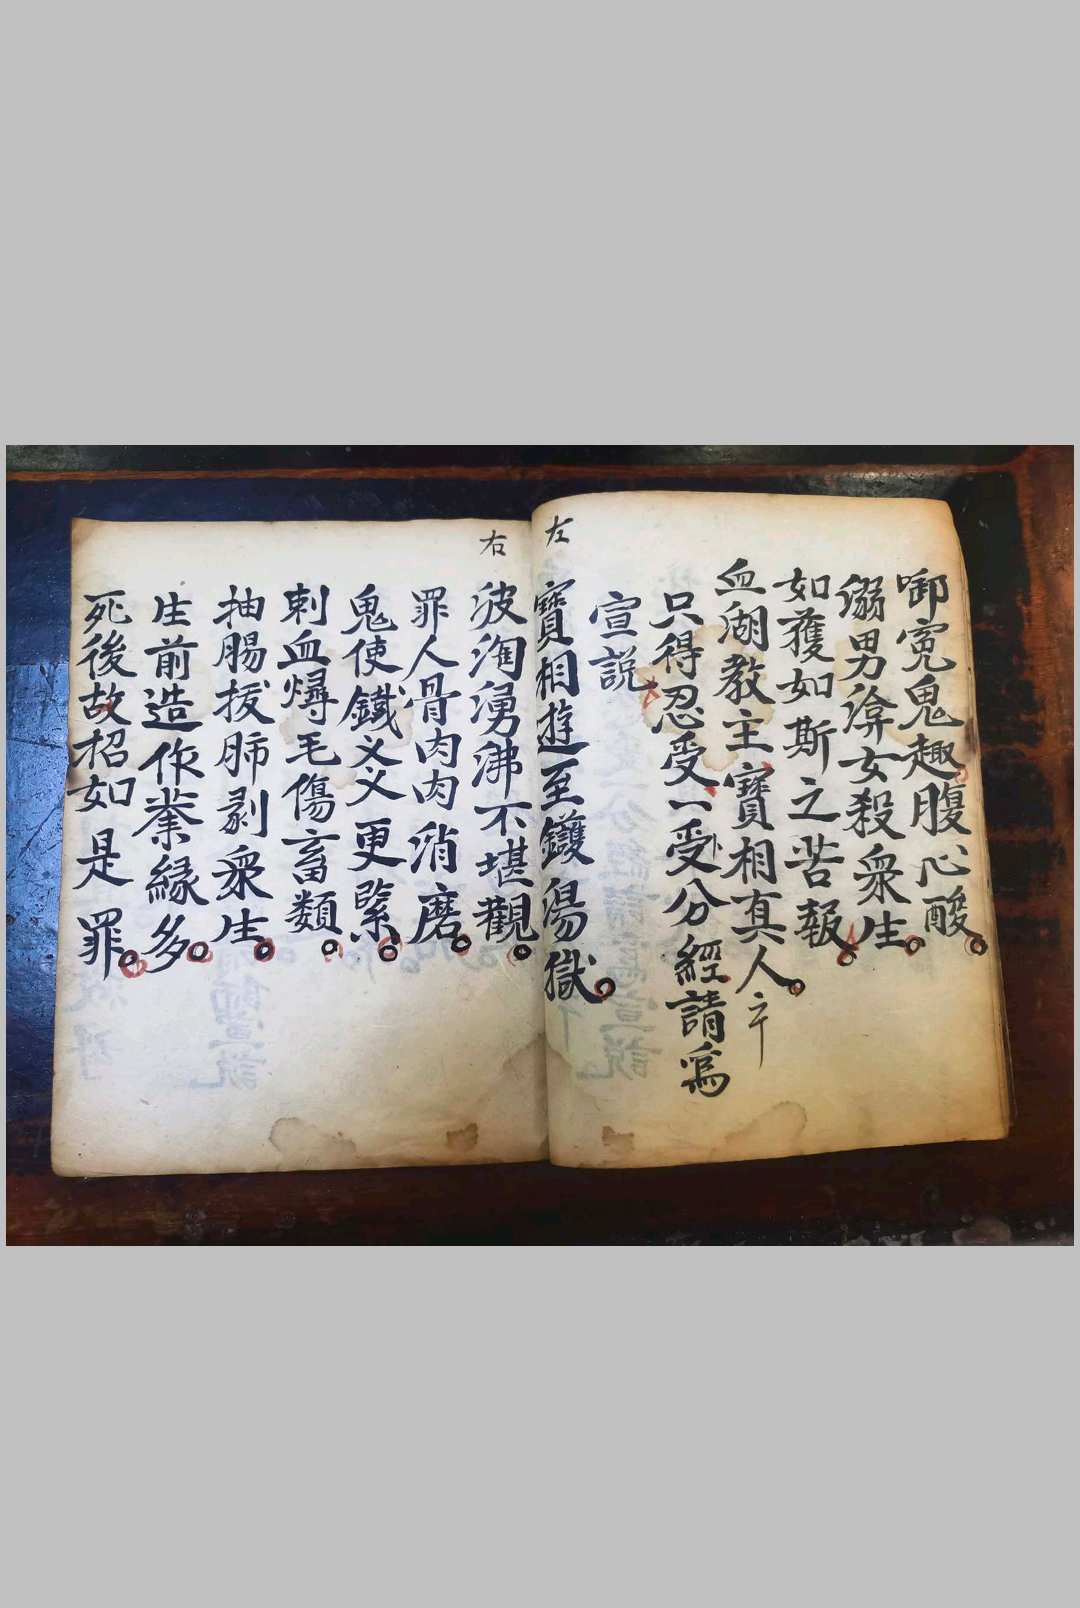 啣寃鬼趣腹心酸
溺男渰女殺衆生
如獲如斯之苦報
血湖教主寶相真人
只得忍受一受分經請爲
宣説
左
寶相遊至鑊湯獄
右
波淘湧沸不堪觀
罪人骨肉肉消磨
鬼使鐵义义更緊
刺血燖毛傷畜類
抽腸拔肺剥衆生
生前造作業緣多
死後故招如是罪